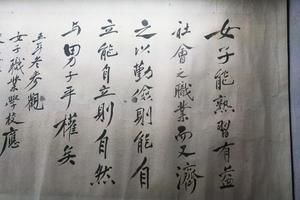 女子能熟習有益
社會之職業而又濟
之以勤儉則能自
立能自立則自然
与男子平權矣
五年冬参觀
女子職業學校應